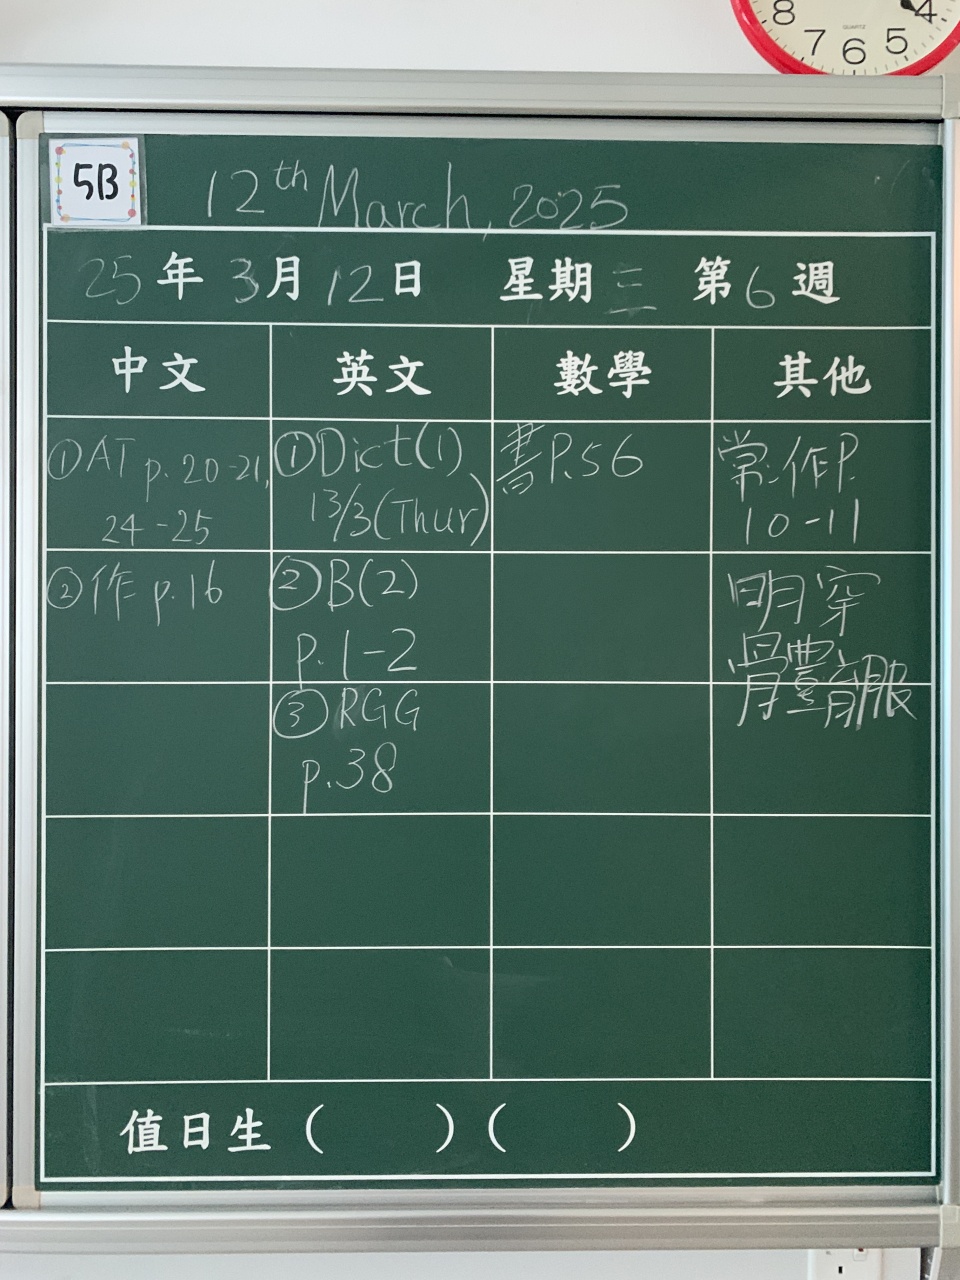 8 7 6 5 4
QUARTZ
5B
12th March, 2025
25年3月12日 星期三 第6週
中文 英文 數學 其他
①AT p. 20-21,
24-25
①Dict(1)
13/3(Thur)
書P.56
常:作P.
10-11
②作 p.16
②B(2)
p.1-2
明穿
體育服
③RGG
p.38
值日生 ( ) ( )